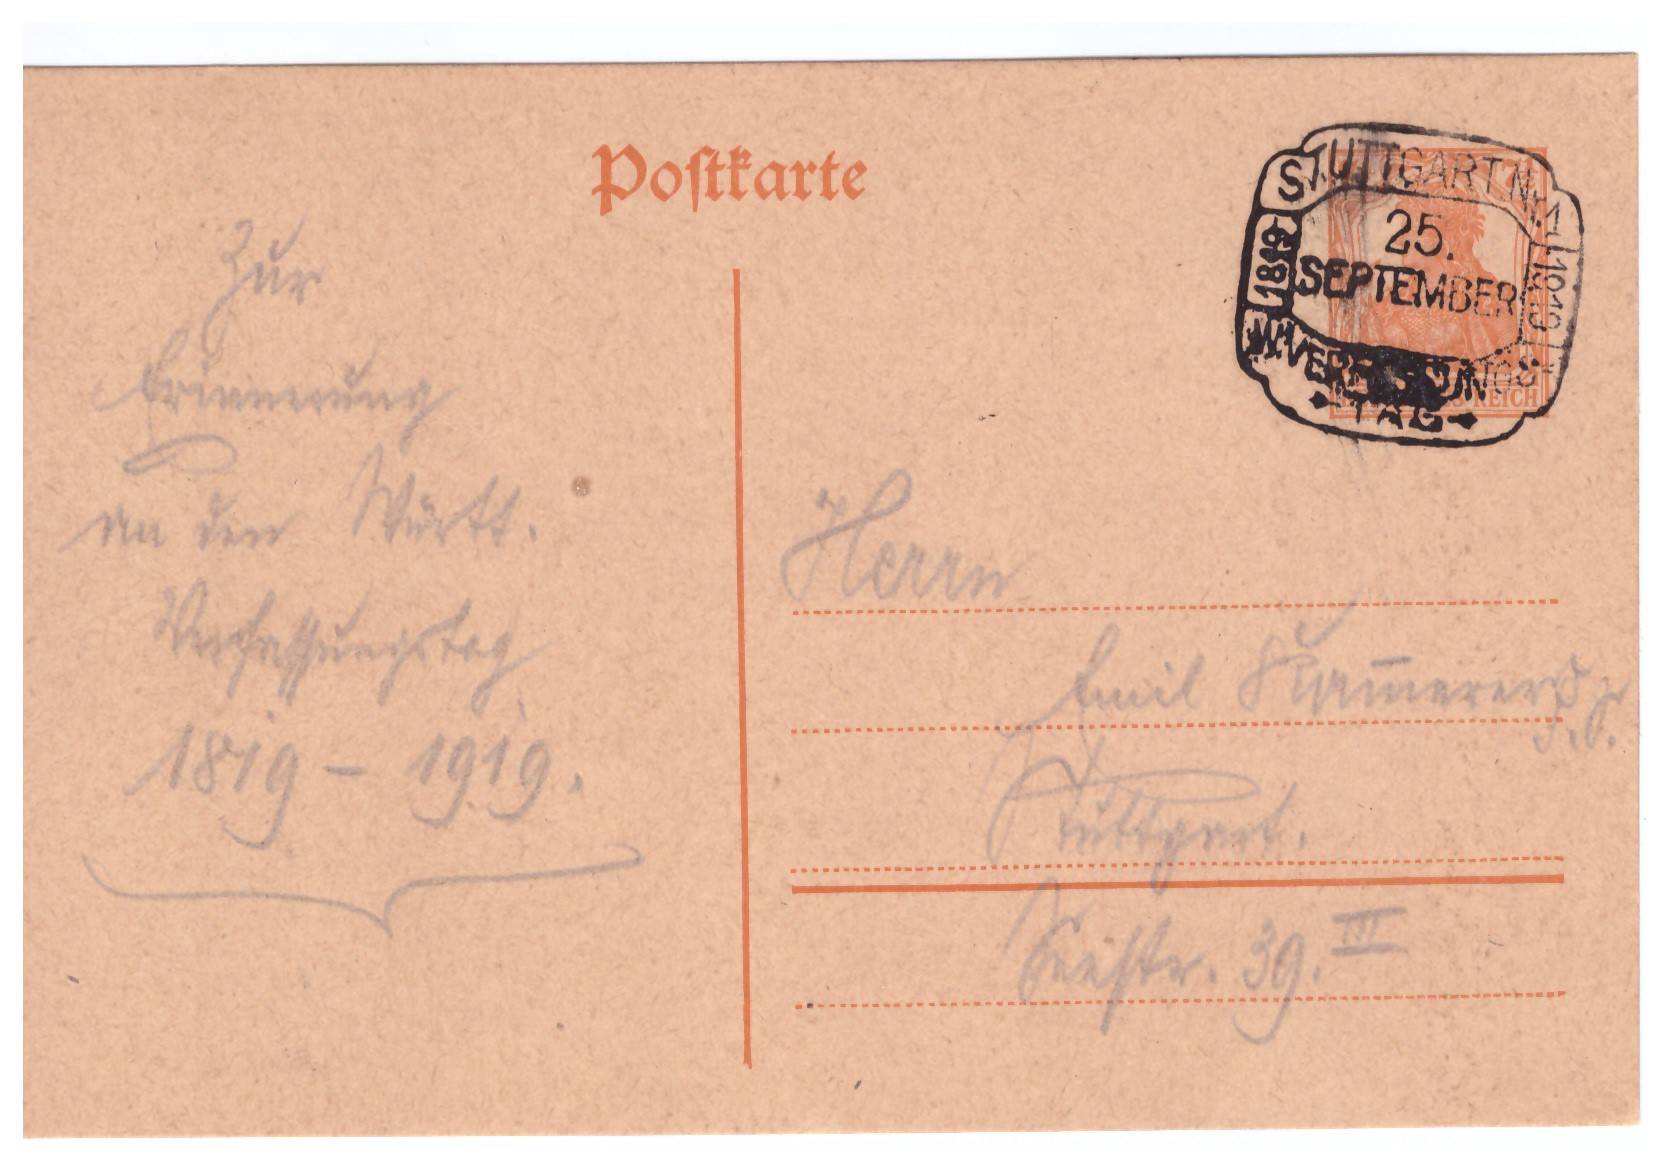 Postkarte
STUTTGART N. 1
1819
25.
SEPTEMBER
1919
W. VERFASSUNGS
TAG
REICH
Zur
Erinnerung
an den Württ.
Verfassungstag
1819 – 1919.
Herrn
Emil Kammerer
Stuttgart.
Seestr. 39. III